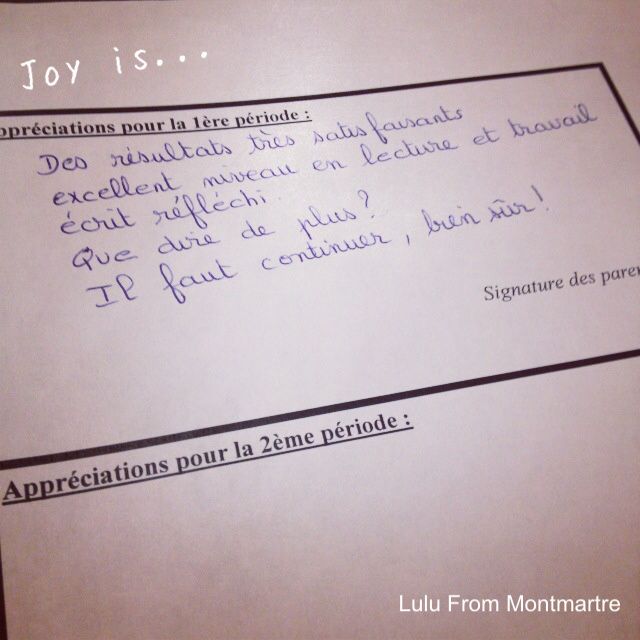 Joy is...
ppréciations pour la 1ère période :
Des résultats très satisfaisants
excellent niveau en lecture et travail
écrit réfléchi.
Que dire de plus?
Il faut continuer, bien sûr!
Signature des paren
Appréciations pour la 2ème période :
Lulu From Montmartre